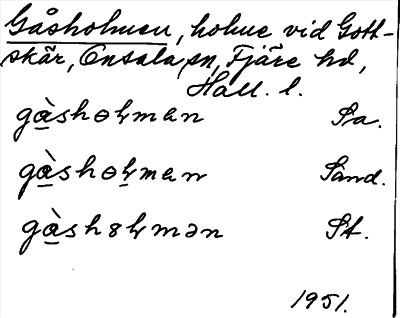 Gåsholmen, holme vid Gott-
skär, Onsala sn, Fjäre hd,
Hall. l.
gàshoɫmen Sa.
gàshoɫmen Sand.
gàshɵɫmən St.
1951.